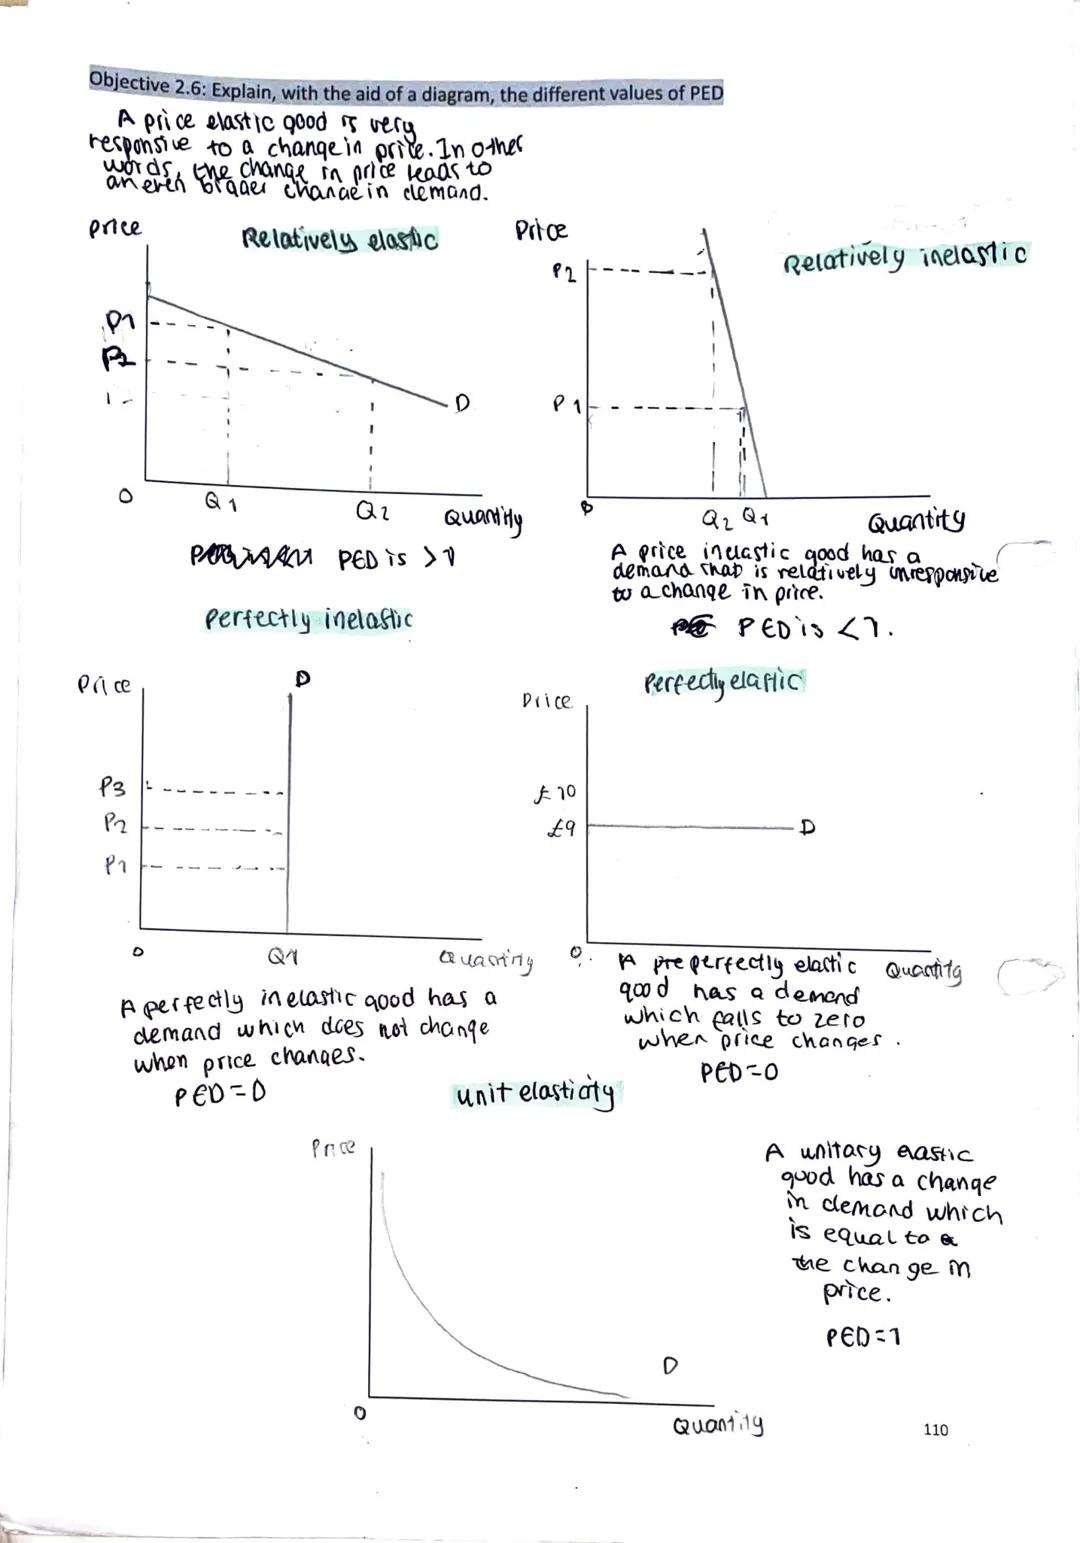 Objective 2.6: Explain, with the aid of a diagram, the different values of PED
A price elastic good is very
responsive to a change in price. In other
words, the change in price leads to
an even bigger change in demand.
price
Relatively elastic
P1
P2
D
0
Q1
Q2
Quantity
PED is >1
Price
Relatively inelastic
P2
P1
0
Q2 Q1
Quantity
A price inelastic good has a
demand that is relatively unresponsive
to a change in price.
PED is <1.
Perfectly inelastic
Price
D
P3
P2
P1
0
Q1
Quantity
A perfectly inelastic good has a
demand which does not change
when price changes.
PED=0
Perfectly elastic
Price
£10
£9
D
0
Quantity
A pre perfectly elastic
good has a demand
which falls to zero
when price changes.
PED=0
unit elasticity
Price
D
0
Quantity
A unitary elastic
good has a change
in demand which
is equal to a
the change in
price.
PED=1
110